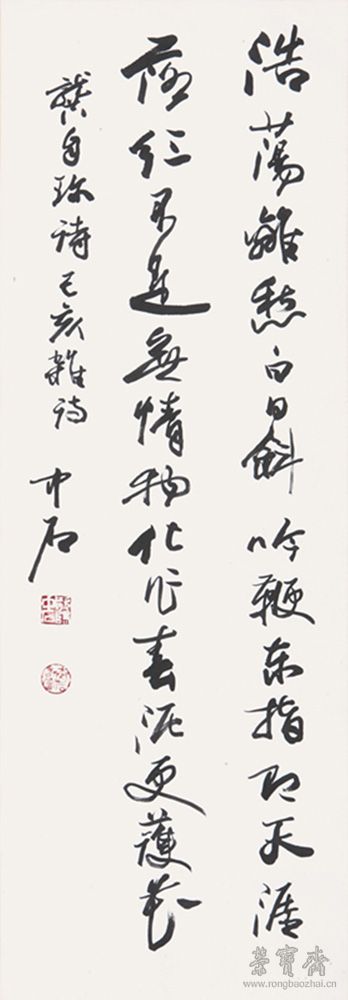 浩蕩離愁白日斜吟鞭東指即天涯
落紅不是無情物化作春泥更護花
龔自珍詩己亥雜詩 中石
榮寶齋
www.rongbaozhai.cn